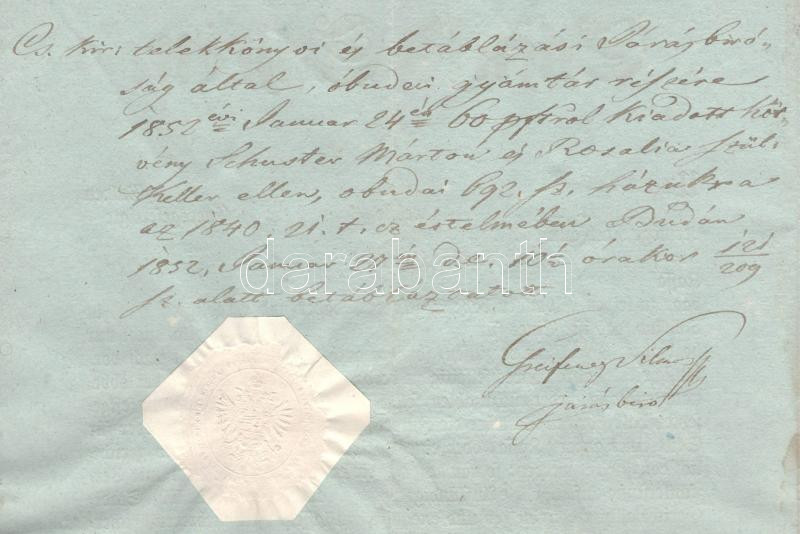 Cs. kir. telekkönyvi és betáblázási Járásbiró-
ság által, óbudai gyámtár részére
1852 évi Januar 24én 60 pftrol kiadott köt-
vény Schuster Márton és Rosalia szül.
Keller ellen, óbudai 692. sz. házukra
az 1840. 21. t. cz értelmében Budán
1852. Januar 27én de. 10½ órakor 121/209
sz. alatt betábláztatott
darabanth
járásbiró